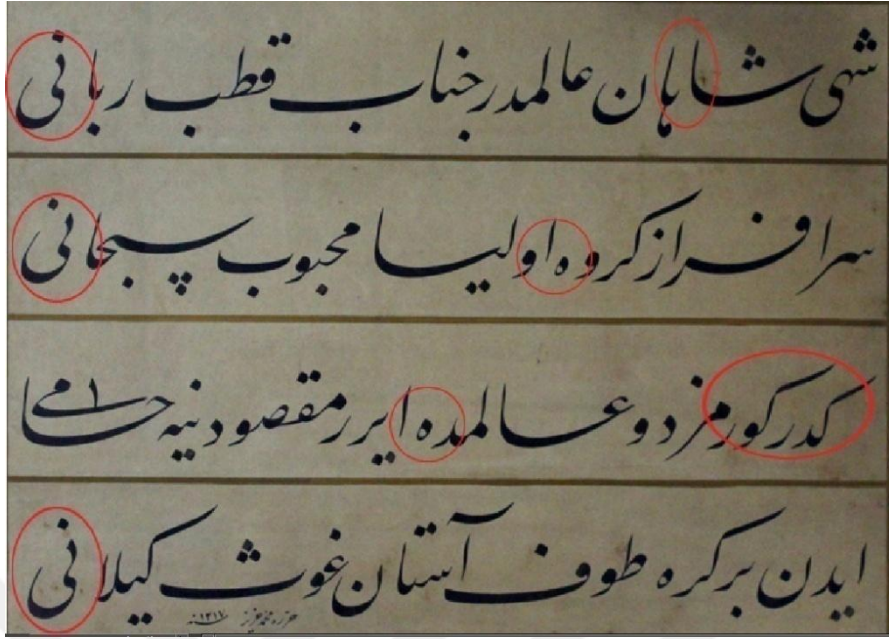 شهی شاهان عالمدر جناب قطب ربانی
سرافراز کروه اولیا محبوب سبحانی
کدر کورمز دو عالمده ایرر مقصودینه حامی
ایدن بر کره طوف آستان غوث کیلانی
حرره محمد عزیز سنه ۱۳۱۷